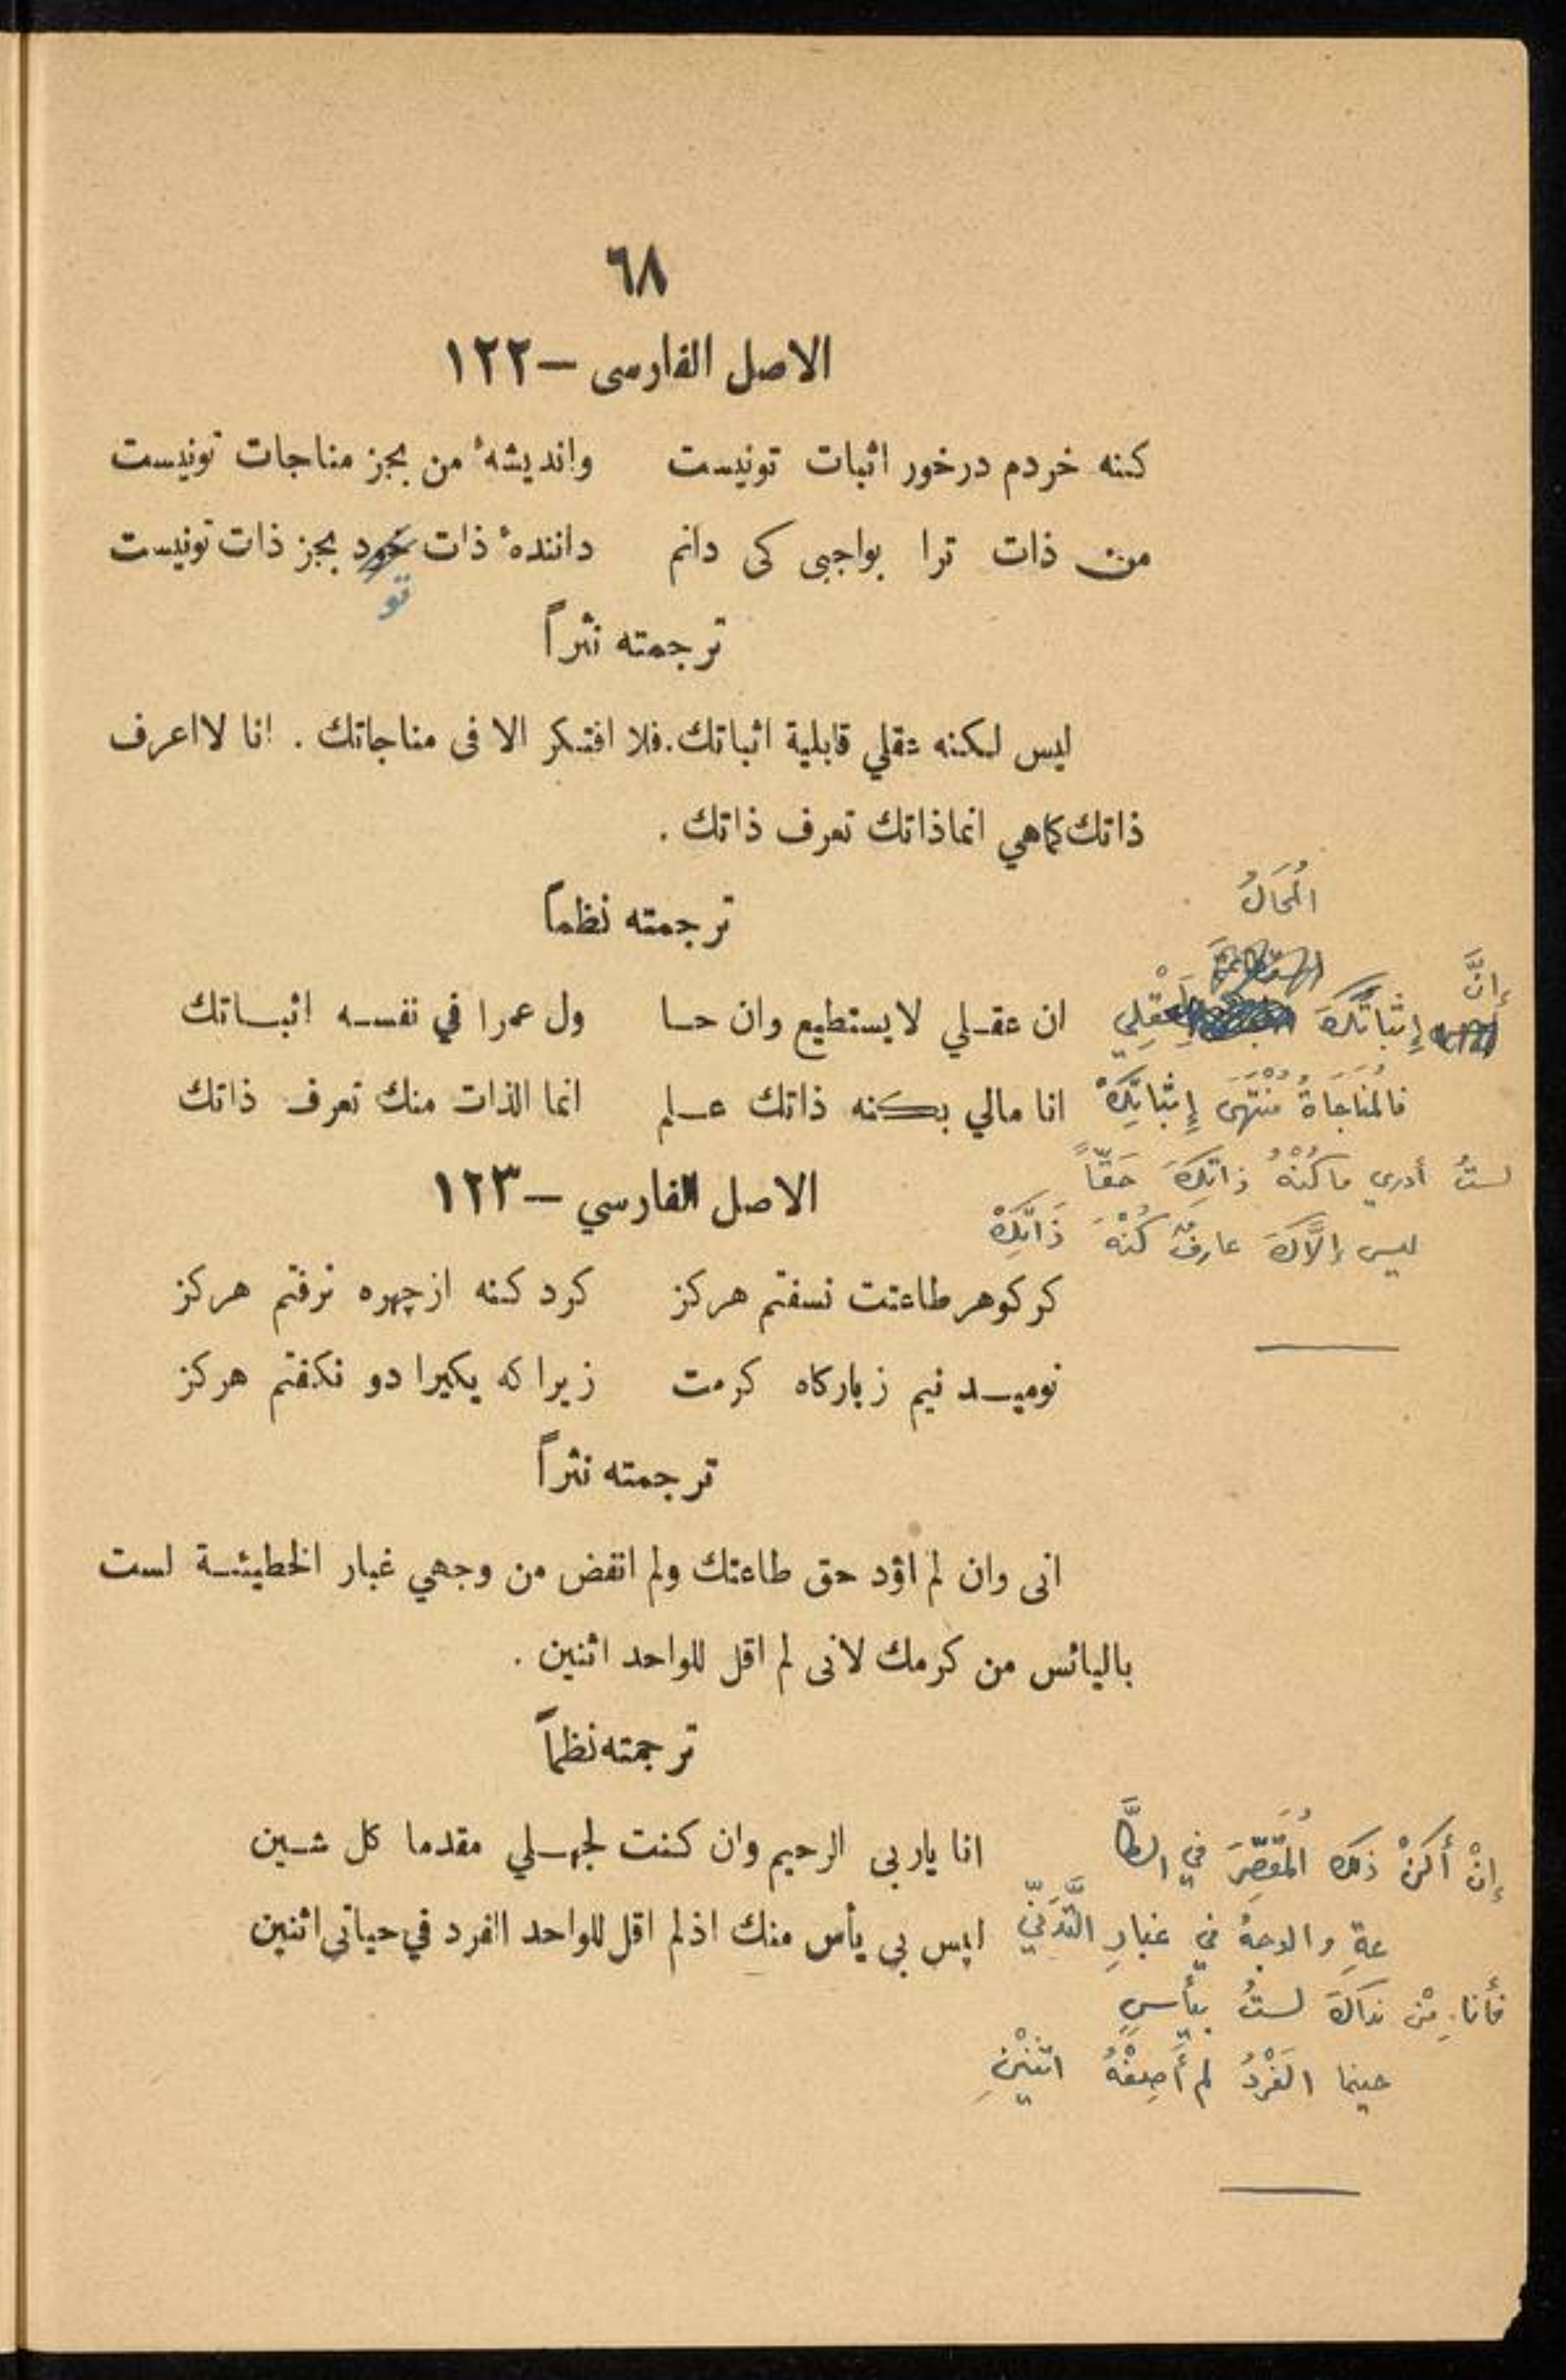 ٦٨
الاصل الفارسى — ١٢٢
كنه خردم درخور اثبات تونيست وانديشهٔ من بجز مناجات تونيست
من ذات ترا بواجبى كى دانم دانندهٔ ذات خود بجز ذات تونيست
تو
ترجمته نثراً
ليس لكنه عقلي قابلية اثباتك. فلا افتكر الا فى مناجاتك . انا لااعرف
ذاتك كماهي انماذاتك تعرف ذاتك .
ترجمته نظماً
ان عقلي لايستطيع وان حا ول عمرا في نفسه اثباتك
انا مالي بكنه ذاتك علم انما الذات منك تعرف ذاتك
المُحَالُ
إنَّ
إِثباتَكَ لِعَقْلِي
فالمُنَاجَاةُ مُنْتَهَى إِثْبَاتِكْ
لستُ أدري ماكُنْهُ ذاتِكَ حَقّاً
ليس إلَّاكَ عارفٌ كُنْهَ ذَاتِكْ
الاصل الفارسي — ١٢٣
كر كوهر طاعتت نسفتم هركز كرد كنه ازچهره نرفتم هركز
نوميد نيم زباركاه كرمت زيرا كه يكيرا دو نكفتم هركز
ترجمته نثراً
انى وان لم اؤد حق طاعتك ولم انفض من وجهي غبار الخطيئة لست
باليائس من كرمك لانى لم اقل للواحد اثنين .
ترجمته نظماً
انا ياربى الرحيم وان كنت لجهلي مقدما كل شين
ليس بى يأس منك اذلم اقل للواحد الفرد في حياتى اثنين
إنْ أكنْ ذلك المُقَصِّرَ في الطَّا
عةِ والوجهُ في غبارِ التَّدَنِّي
فأنا مِنْ نداكَ لستُ بيأسٍ
حينما الفَرْدُ لم أَصِفْهُ اثنَيْنِ